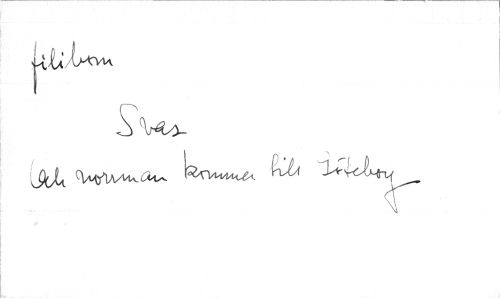 filibom
Svar
Och norrman kommer till Göteborg